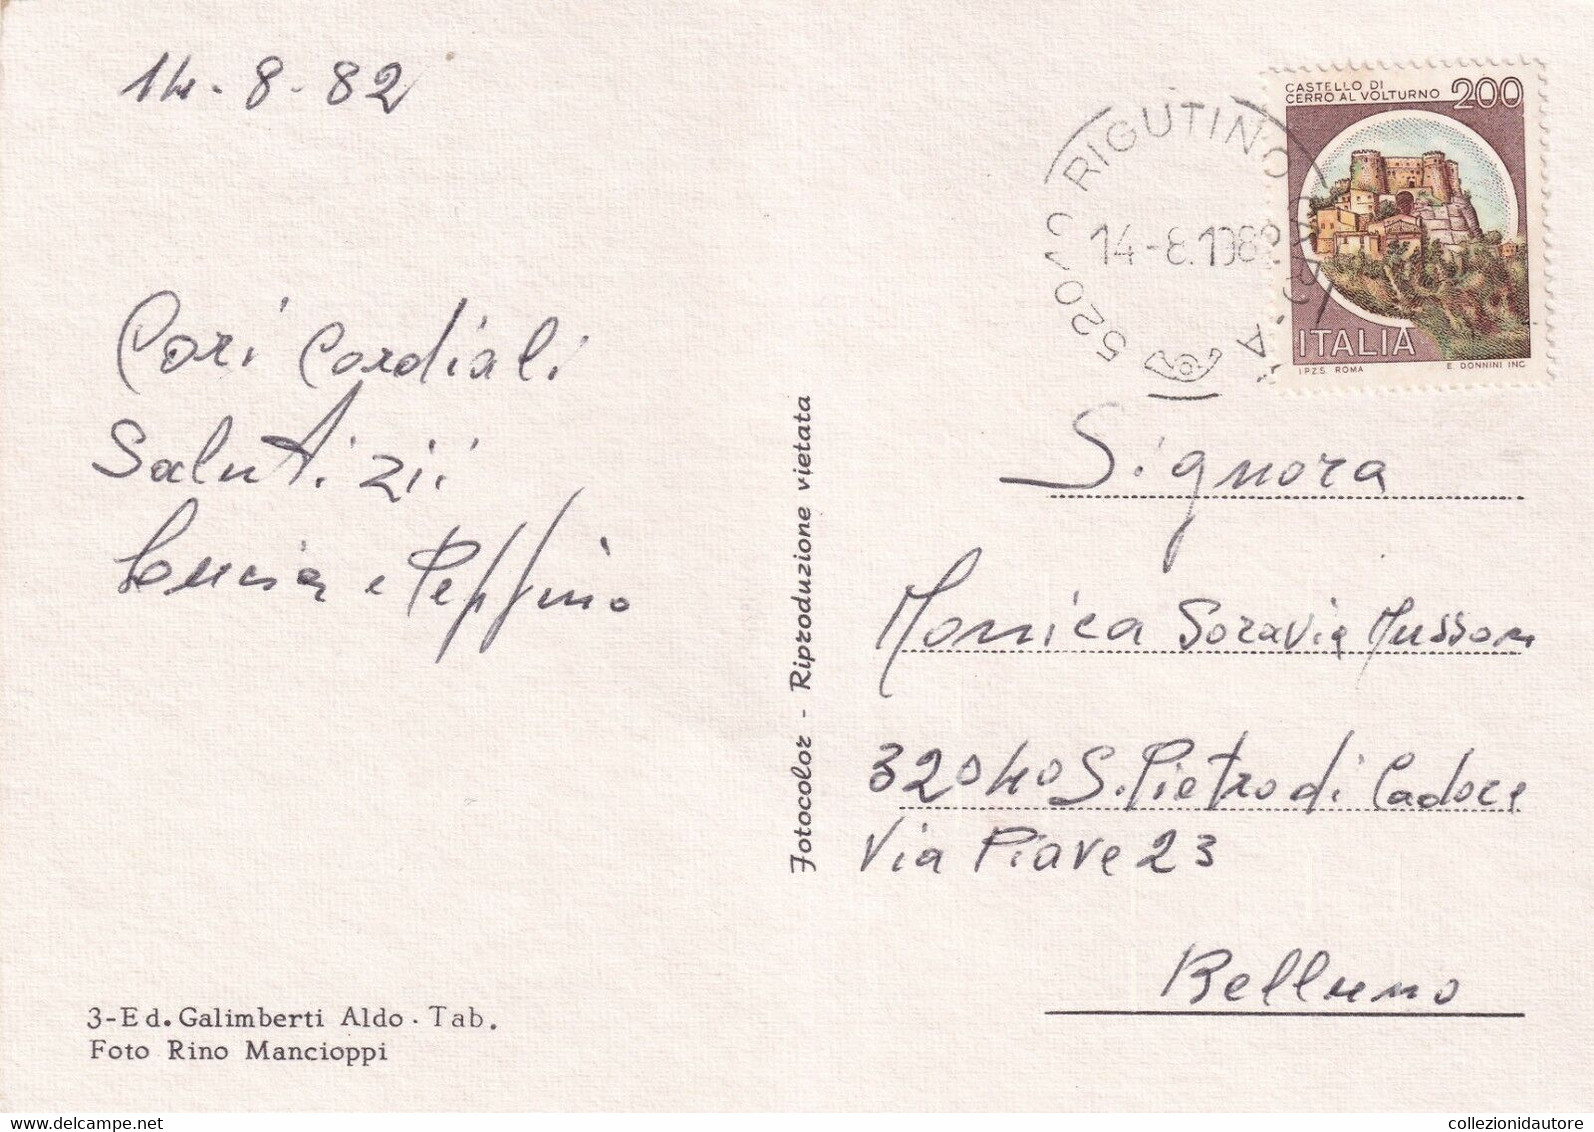 14-8-82
CASTELLO DI
CERRO AL VOLTURNO 200
ITALIA
I.P.Z.S. ROMA E. DONNINI INC.
52040 RIGUTINO
14-8.1982
Cari Cordiali
Saluti zii
Lucia e Peppino
Fotocolor - Riproduzione vietata
Signora
Monica Soravia Musson
32040 S. Pietro di Cadore
Via Piave 23
Belluno
3-Ed. Galimberti Aldo - Tab.
Foto Rino Mancioppi
delcampe.net
collezionidautore